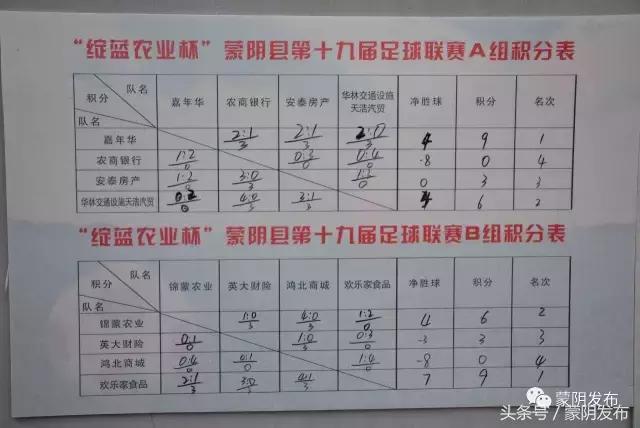 “绽蓝农业杯”蒙阴县第十九届足球联赛A组积分表
积分 队名 队名 嘉年华 农商银行 安泰房产 华林交通设施天浩汽贸 净胜球 积分 名次
嘉年华 2:1 3 2:1 3 2:0 3 4 9 1
农商银行 1:2 0 0:3 0 0:4 0 -8 0 4
安泰房产 1:2 0 3:0 3 0 0 3 3
华林交通设施天浩汽贸 0:2 0 4:0 3 3:1 3 4 6 2
“绽蓝农业杯”蒙阴县第十九届足球联赛B组积分表
积分 队名 队名 锦蒙农业 英大财险 鸿北商城 欢乐家食品 净胜球 积分 名次
锦蒙农业 1:0 3 4:0 3 1:2 0 4 6 2
英大财险 0:1 0 1:0 3 0:3 0 -3 3 3
鸿北商城 0:4 0 0 1:4 0 -8 0 4
欢乐家食品 2:1 3 3:0 3 4:1 3 7 9 1
蒙阴发布
头条号/蒙阴发布